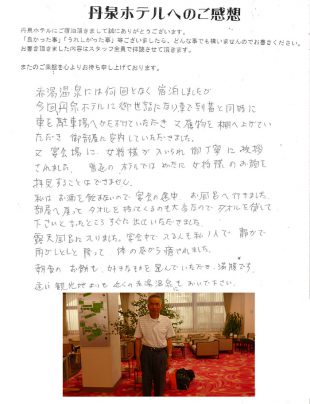 丹泉ホテルへのご感想
丹泉ホテルにご宿泊頂きまして誠にありがとうございます。
「良かった事」「うれしかった事」等ございましたら、どんな事でも構いませんのでお書きください。
お書き頂きました内容はスタッフ全員で拝読させて頂きます。
またのご来館を心よりお待ち申し上げております。
赤湯温泉には何回となく宿泊しましたが
今回丹泉ホテルに御世話になりまして到着と同時に
車を駐車場へかたづけていただき 又荷物を
ただき 御部屋に案内していただきました。
又宴会場に女将様が 御丁寧に挨拶
されました。 普通の ホテルでは めったに女将様のお顔を
拝見することはできません。
私はお酒を飲まないので 宴会の途中 お風呂へ行きました。
部屋へ戻って タオルを持ってくるのも大変なので タオルを貸して
下さいと言ったところ すぐに出していただきました。
露天風呂に入りました。宴会中で 入る人も私1人で 静かで
雨がしとしと降って 体の芯から癒されました。
朝食の お餅も 好きなものを選んでいただき 満腹です。
近い観光地よりも 近くの赤湯温泉に おいで下さい。